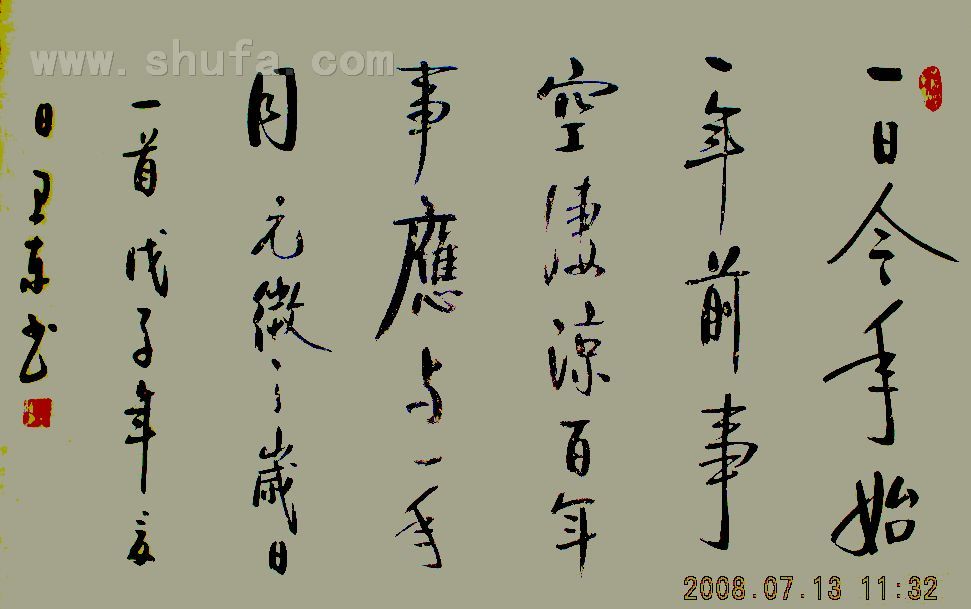 www.shufa.com
一日今年始
一年前事
空淒涼百年
事應与一年
同 元微之歲日
一首戊子年夏
日东书
2008.07.13 11:32